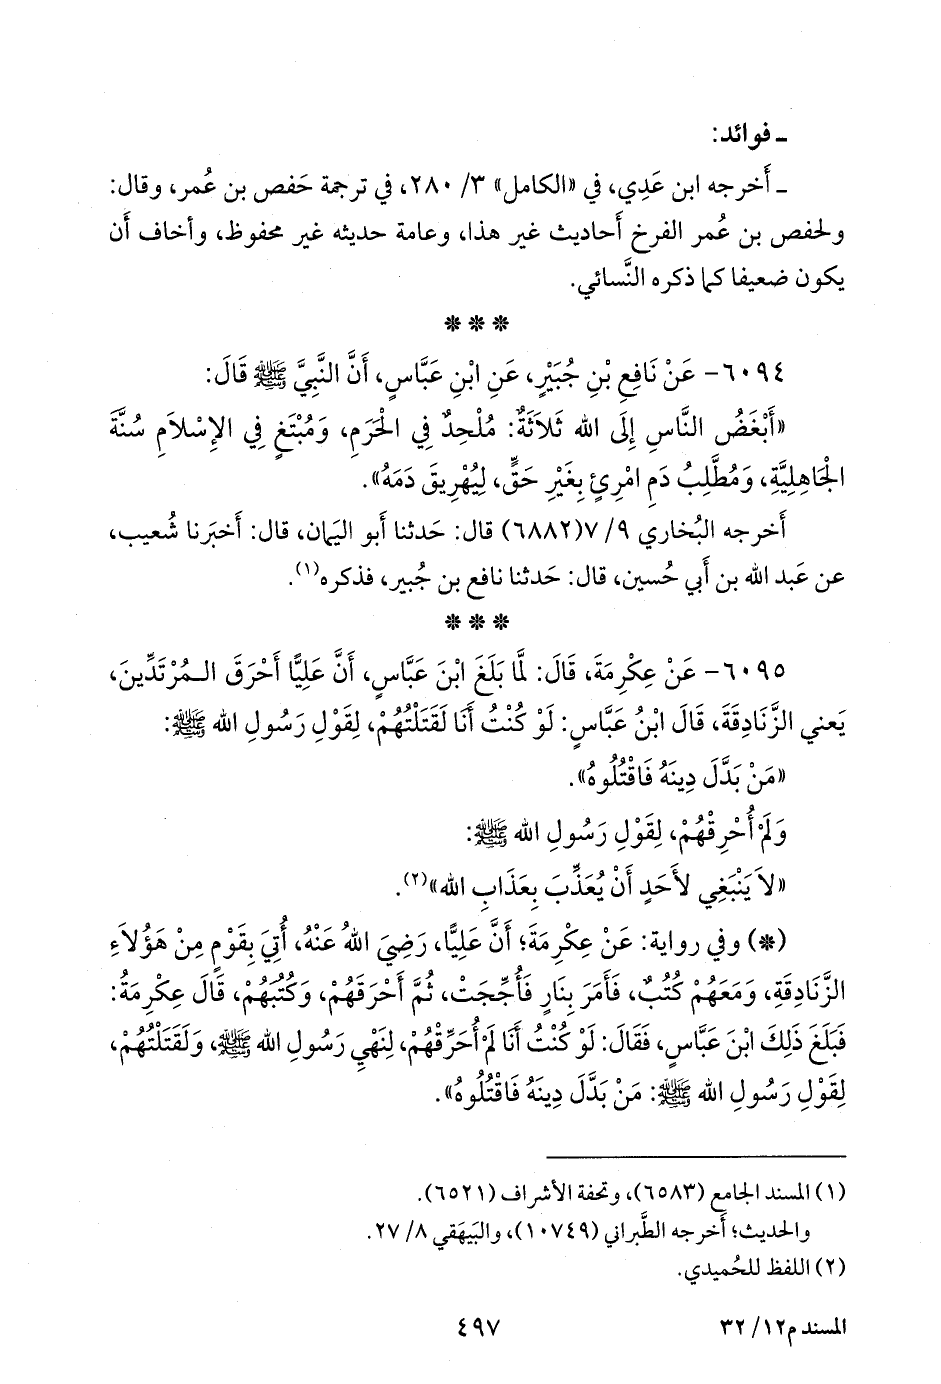 ـ فوائد:
ـ أَخرجه ابن عَدِي، في «الكامل» ٣/ ٢٨٠، في ترجمة حَفص بن عُمر، وقال:
ولحفص بن عُمر الفرخ أَحاديث غير هذا، وعامة حديثه غير محفوظ، وأخاف أَن
يكون ضعيفا كما ذكره النَّسائي.
* * *
٦٠٩٤- عَنْ نَافِعِ بْنِ جُبَيْرٍ، عَنِ ابْنِ عَبَّاسٍ، أَنَّ النَّبِيَّ ﷺ قَالَ:
«أَبْغَضُ النَّاسِ إِلَى الله ثَلاَثَةٌ: مُلْحِدٌ فِي الْحَرَمِ، وَمُبْتَغٍ فِي الإِسْلاَمِ سُنَّةَ
الْجَاهِلِيَّةِ، وَمُطَّلِبُ دَمِ امْرِئٍ بِغَيْرِ حَقٍّ، لِيُهْرِيقَ دَمَهُ».
أَخرجه البُخاري ٩/ ٧(٦٨٨٢) قال: حَدثنا أَبو اليَمان، قال: أَخبَرنا شُعيب،
عن عَبد الله بن أَبي حُسين، قال: حَدثنا نافع بن جُبير، فذكره(١).
* * *
٦٠٩٥- عَنْ عِكْرِمَةَ، قَالَ: لَمَّا بَلَغَ ابْنَ عَبَّاسٍ، أَنَّ عَلِيًّا أَحْرَقَ الـمُرْتَدِّينَ،
يَعني الزَّنَادِقَةَ، قَالَ ابْنُ عَبَّاسٍ: لَوْ كُنْتُ أَنَا لَقَتَلْتُهُمْ، لِقَوْلِ رَسُولِ الله ﷺ:
«مَنْ بَدَّلَ دِينَهُ فَاقْتُلُوهُ».
وَلَمْ أُحْرِقْهُمْ، لِقَوْلِ رَسُولِ الله ﷺ:
«لاَ يَنْبَغِي لأَحَدٍ أَنْ يُعَذِّبَ بِعَذَابِ الله»(٢).
(*) وفي رواية: عَنْ عِكْرِمَةَ؛ أَنَّ عَلِيًّا، رَضِيَ اللهُ عَنْهُ، أُتِيَ بِقَوْمٍ مِنْ هَؤُلاَءِ
الزَّنَادِقَةِ، وَمَعَهُمْ كُتُبٌ، فَأَمَرَ بِنَارٍ فَأُجِّجَتْ، ثُمَّ أَحْرَقَهُمْ، وَكُتُبَهُمْ، قَالَ عِكْرِمَةُ:
فَبَلَغَ ذَلِكَ ابْنَ عَبَّاسٍ، فَقَالَ: لَوْ كُنْتُ أَنَا لَمْ أُحَرِّقْهُمْ، لِنَهْيِ رَسُولِ الله ﷺ، وَلَقَتَلْتُهُمْ،
لِقَوْلِ رَسُولِ الله ﷺ: مَنْ بَدَّلَ دِينَهُ فَاقْتُلُوهُ».
(١) المسند الجامع (٦٥٨٣)، وتحفة الأشراف (٦٥٢١).
والحديث؛ أَخرجه الطَّبراني (١٠٧٤٩)، والبَيهَقي ٨/ ٢٧.
(٢) اللفظ للحُميدي.
المسند م١٢/ ٣٢
٤٩٧